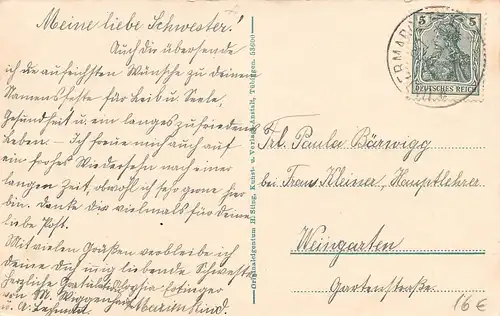 Meine liebe Schwester!
Auch die übersende
ich die aufrichten Wünsche zu deinem
Namensfeste für Leib u. Seele,
Gesundheit u. ein langes zufriedenes
Leben. – Ich freue mich auch auf
ein frohes Wiedersehn nach einer
langen Zeit, obwohl ich sehr gerne hier
bin. Danke dir vielmals für deine
liebe Post.
Mit vielen Grüßen verbleibe ich
deine dich innig liebende Schwester
Herzliche Gratulation Sophia
von M. Wiggenhauser
u. A.
Originaleigentum H. Sting, Kunst- u. Verlags-Anstalt, Tübingen. 53600
5 5
DEUTSCHES REICH
Frl. Paula Bärwigg
bei Franz Kleiner, Hauptlehrer
Weingarten
Gartenstraße
16 €